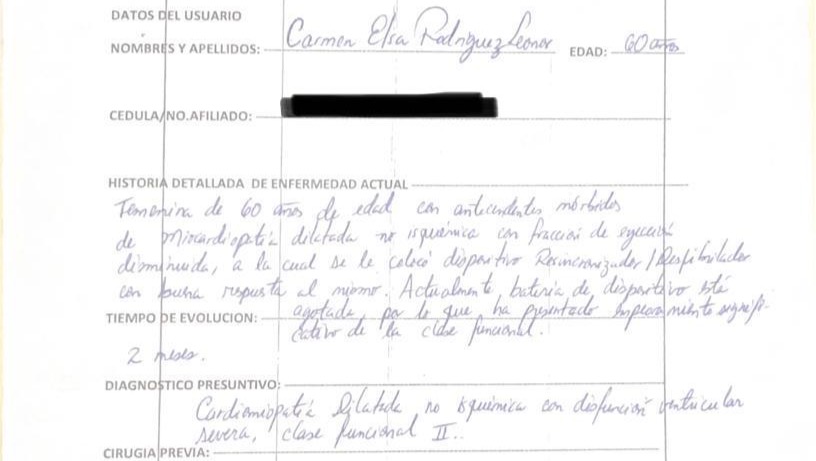 DATOS DEL USUARIO
NOMBRES Y APELLIDOS: Carmen Elsa Rodriguez Leonor EDAD: 60 años
CEDULA/NO.AFILIADO:
HISTORIA DETALLADA DE ENFERMEDAD ACTUAL
Femenina de 60 años de edad con antecedentes mórbidos
de Miocardiopatía dilatada no isquémica con fracción de eyección
disminuida, a la cual se le colocó dispositivo Resincronizador/Desfibrilador
con buena respuesta al mismo. Actualmente batería de dispositivo está
agotada, por lo que ha presentado empeoramiento signifi-
TIEMPO DE EVOLUCION:
cativo de la clase funcional.
2 meses.
DIAGNOSTICO PRESUNTIVO:
Cardiomiopatía Dilatada no isquémica con disfunción ventricular
severa, clase funcional II..
CIRUGIA PREVIA: